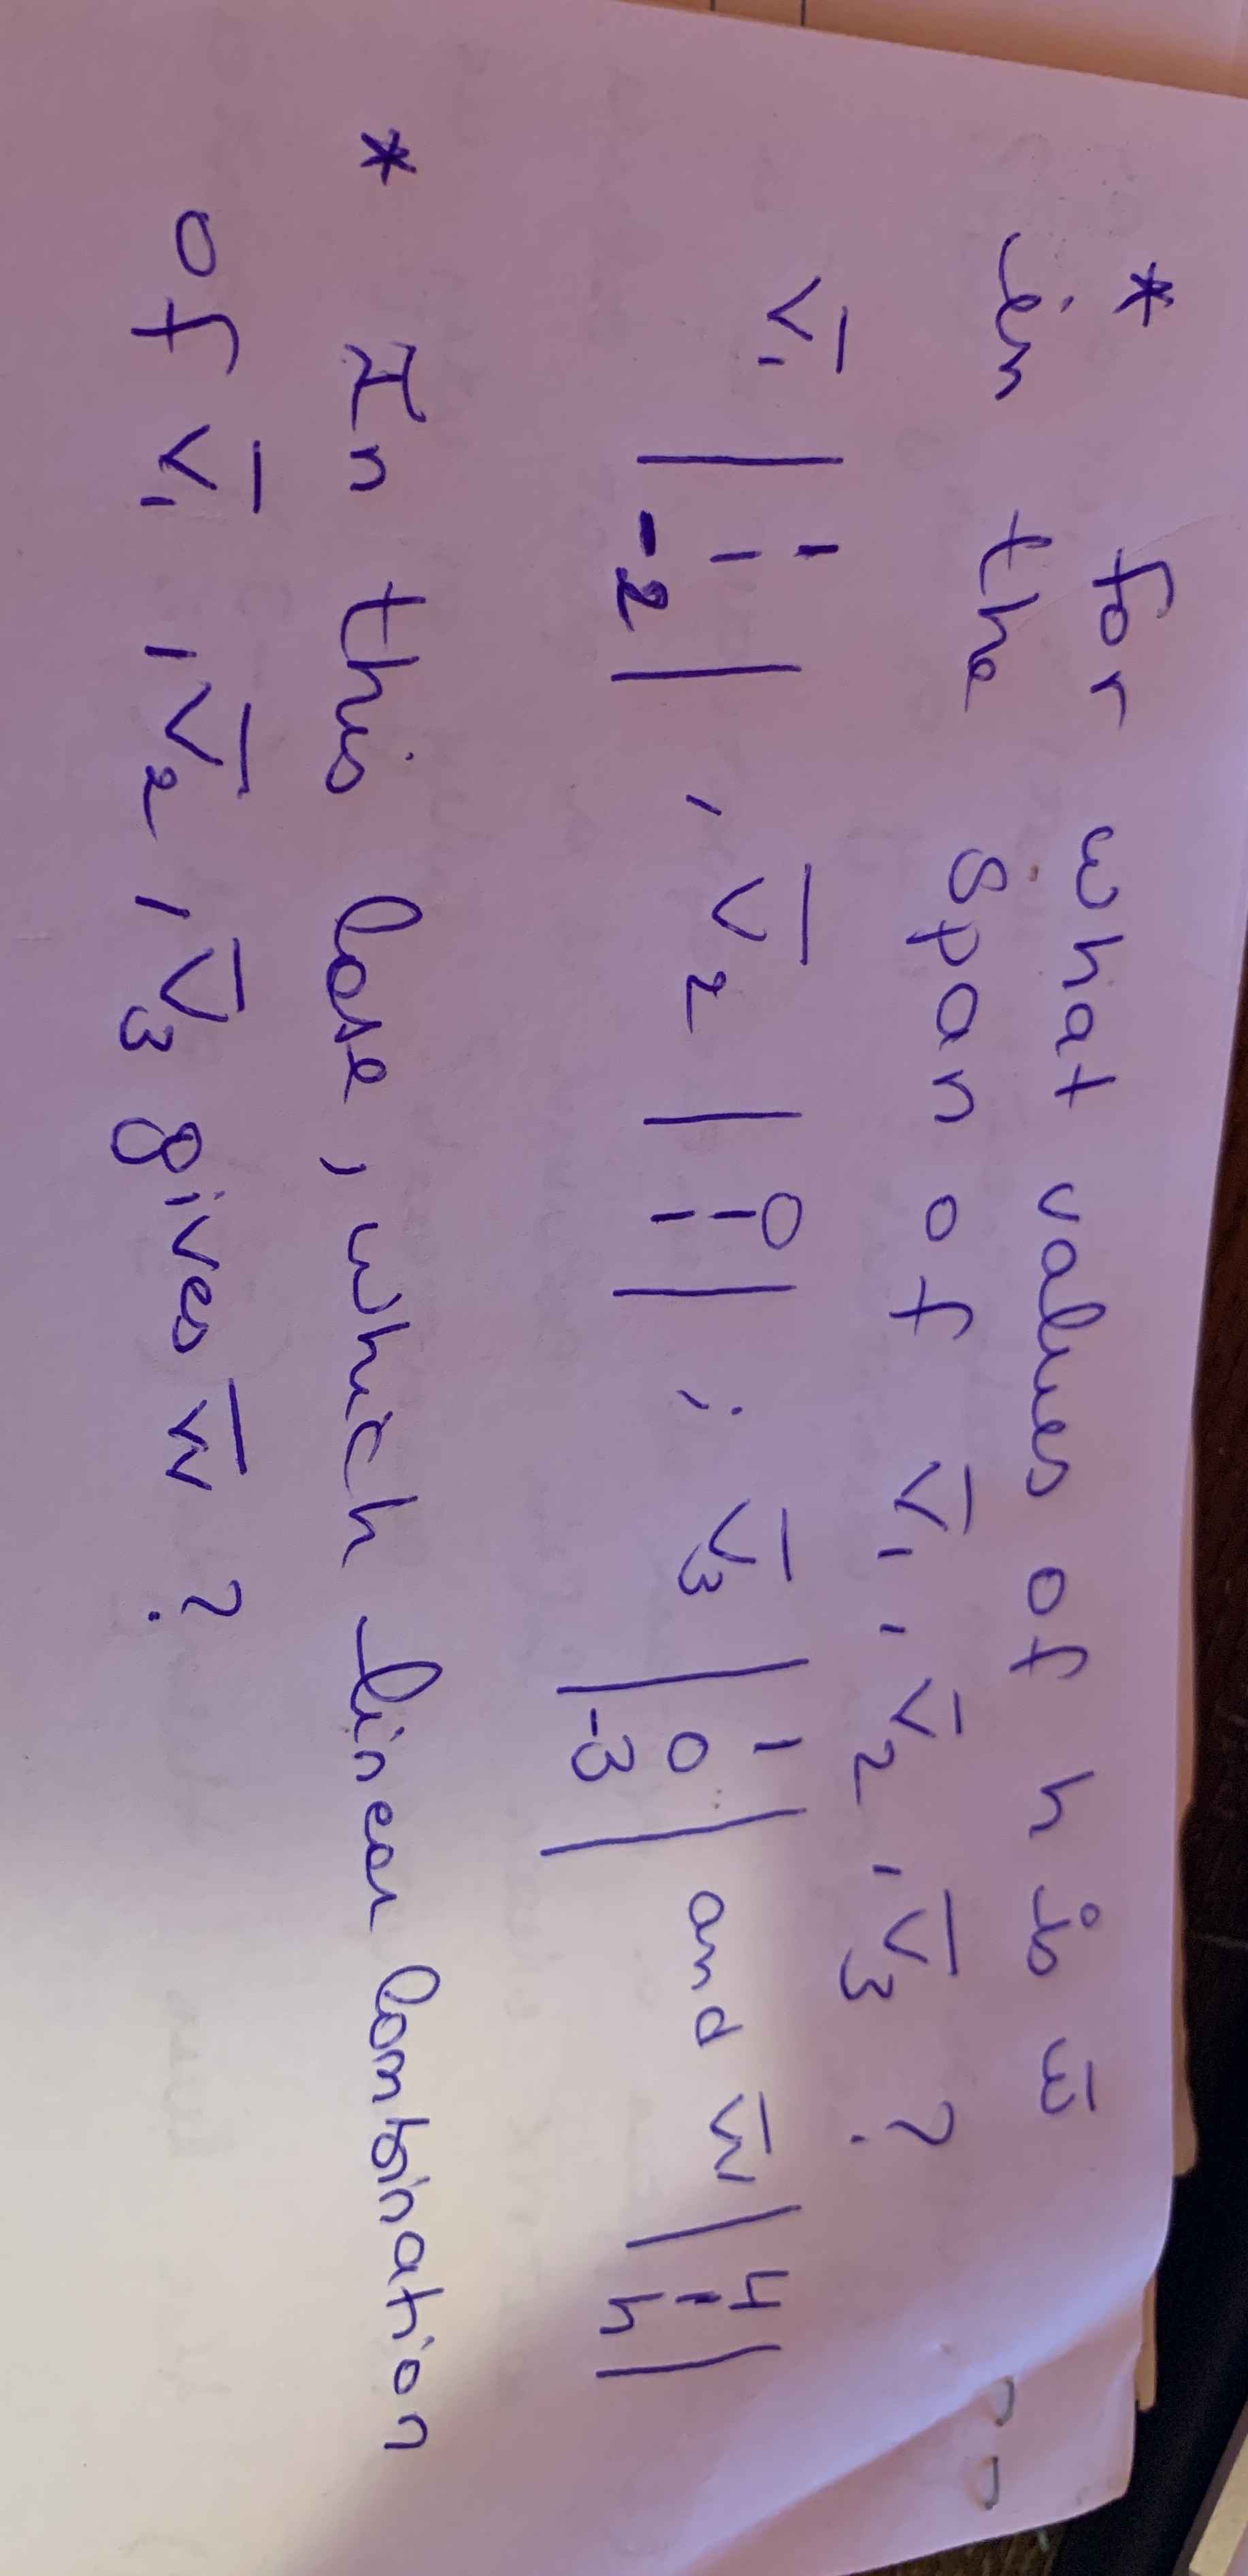 * for what values of h is w̄
in the span of v̄₁, v̄₂, v̄₃ ?
v̄₁ | 1 1 -2 | , v̄₂ | 0 1 1 | ; v̄₃ | 1 0 -3 | and w̄ | 4 1 h |
* In this case, which linear combination
of v̄₁, v̄₂, v̄₃ gives w̄ ?